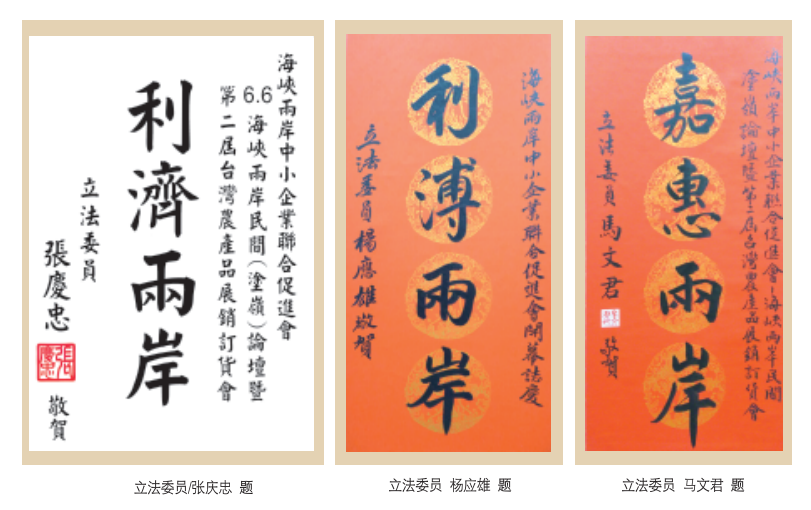 海峽兩岸中小企業聯合促進會
6.6海峽兩岸民間（塗嶺）論壇暨
第二屆台灣農產品展銷訂貨會
利濟兩岸
立法委員
張慶忠
敬賀
立法委员/张庆忠 题
海峽兩岸中小企業聯合促進會開幕誌慶
利溥兩岸
立法委員楊應雄敬賀
立法委员 杨应雄 题
海峽兩岸中小企業聯合促進會、海峽兩岸民間
塗嶺論壇暨第二屆台灣農產品展銷訂貨會
嘉惠兩岸
立法委員馬文君 敬賀
立法委员 马文君 题